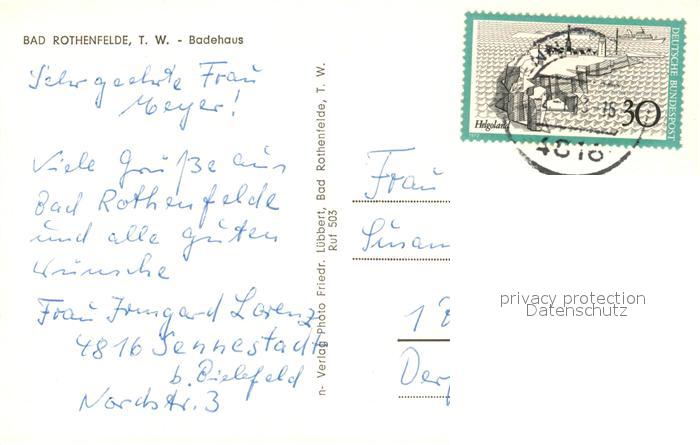 BAD ROTHENFELDE, T. W. - Badehaus
Sehr geehrte Frau
Meyer!
Viele Grüße aus
Bad Rothenfelde
und alle guten
Wünsche
Frau Irmgard Lorenz
4816 Sennestadt
b. Bielefeld
Nordstr. 3
n- Verlag Photo Friedr. Lübbert, Bad Rothenfelde, T. W.
Ruf 503
DEUTSCHE BUNDESPOST
Helgoland
30
1972
4816
Frau
Susan
1
privacy protection
Datenschutz